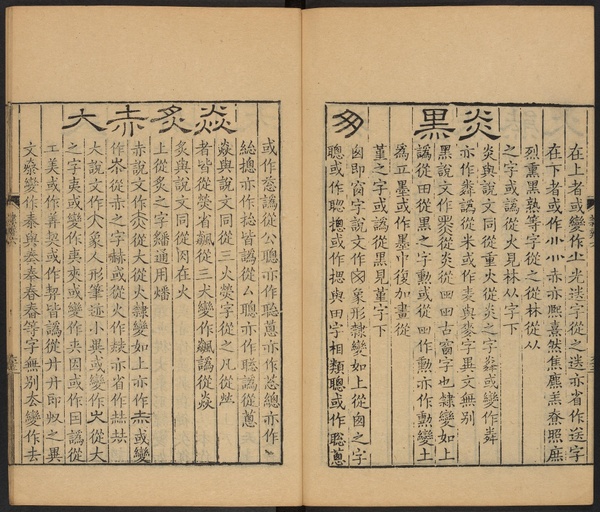 在上者或變作光送字從之送亦省作送字
在下者或作小亦赤亦熙熹然焦廌羔尞照庶
烈熏黑熟等字從之從林從从
之字或譌從火見林从字下
炎
炎與說文同從重火從炎之字粦或變作粦
亦作彝譌從米或作麦與麥字異文無别
黑
黑說文作從炎從古窗字也隸變如上
譌從田從黑之字勲或從田作勲亦作勲變土
爲立墨或作墨中復加畫從
堇之字或譌從黑見堇字下
囱即窗字說文作囱象形隸變如上從囱之字
聰或作聦摠或作揔與田字相類聰或作聡蔥
或作葱譌從公聰亦作聡蔥亦作忩總亦作
緫摠亦作捴皆譌從厶聰亦作聴譌從蔥
焱
焱與說文同從三火熒字從之凡從
者皆從熒省飆從三犬變作飆譌從焱
炙
炙與說文同從肉在火
上從炙之字繙通用燔
赤
赤說文作從大從火隸變如上亦作赤或變
作从赤之字赫或從火作亦省作
大
大說文作大象人形筆迹小異或變作從大
之字夷或變作夷夾或變作夹因或作囙譌從
工美或作羙契或作皆譌從丹丹即収之異
文奏變作奏與泰奉春舂等字無别去變作去